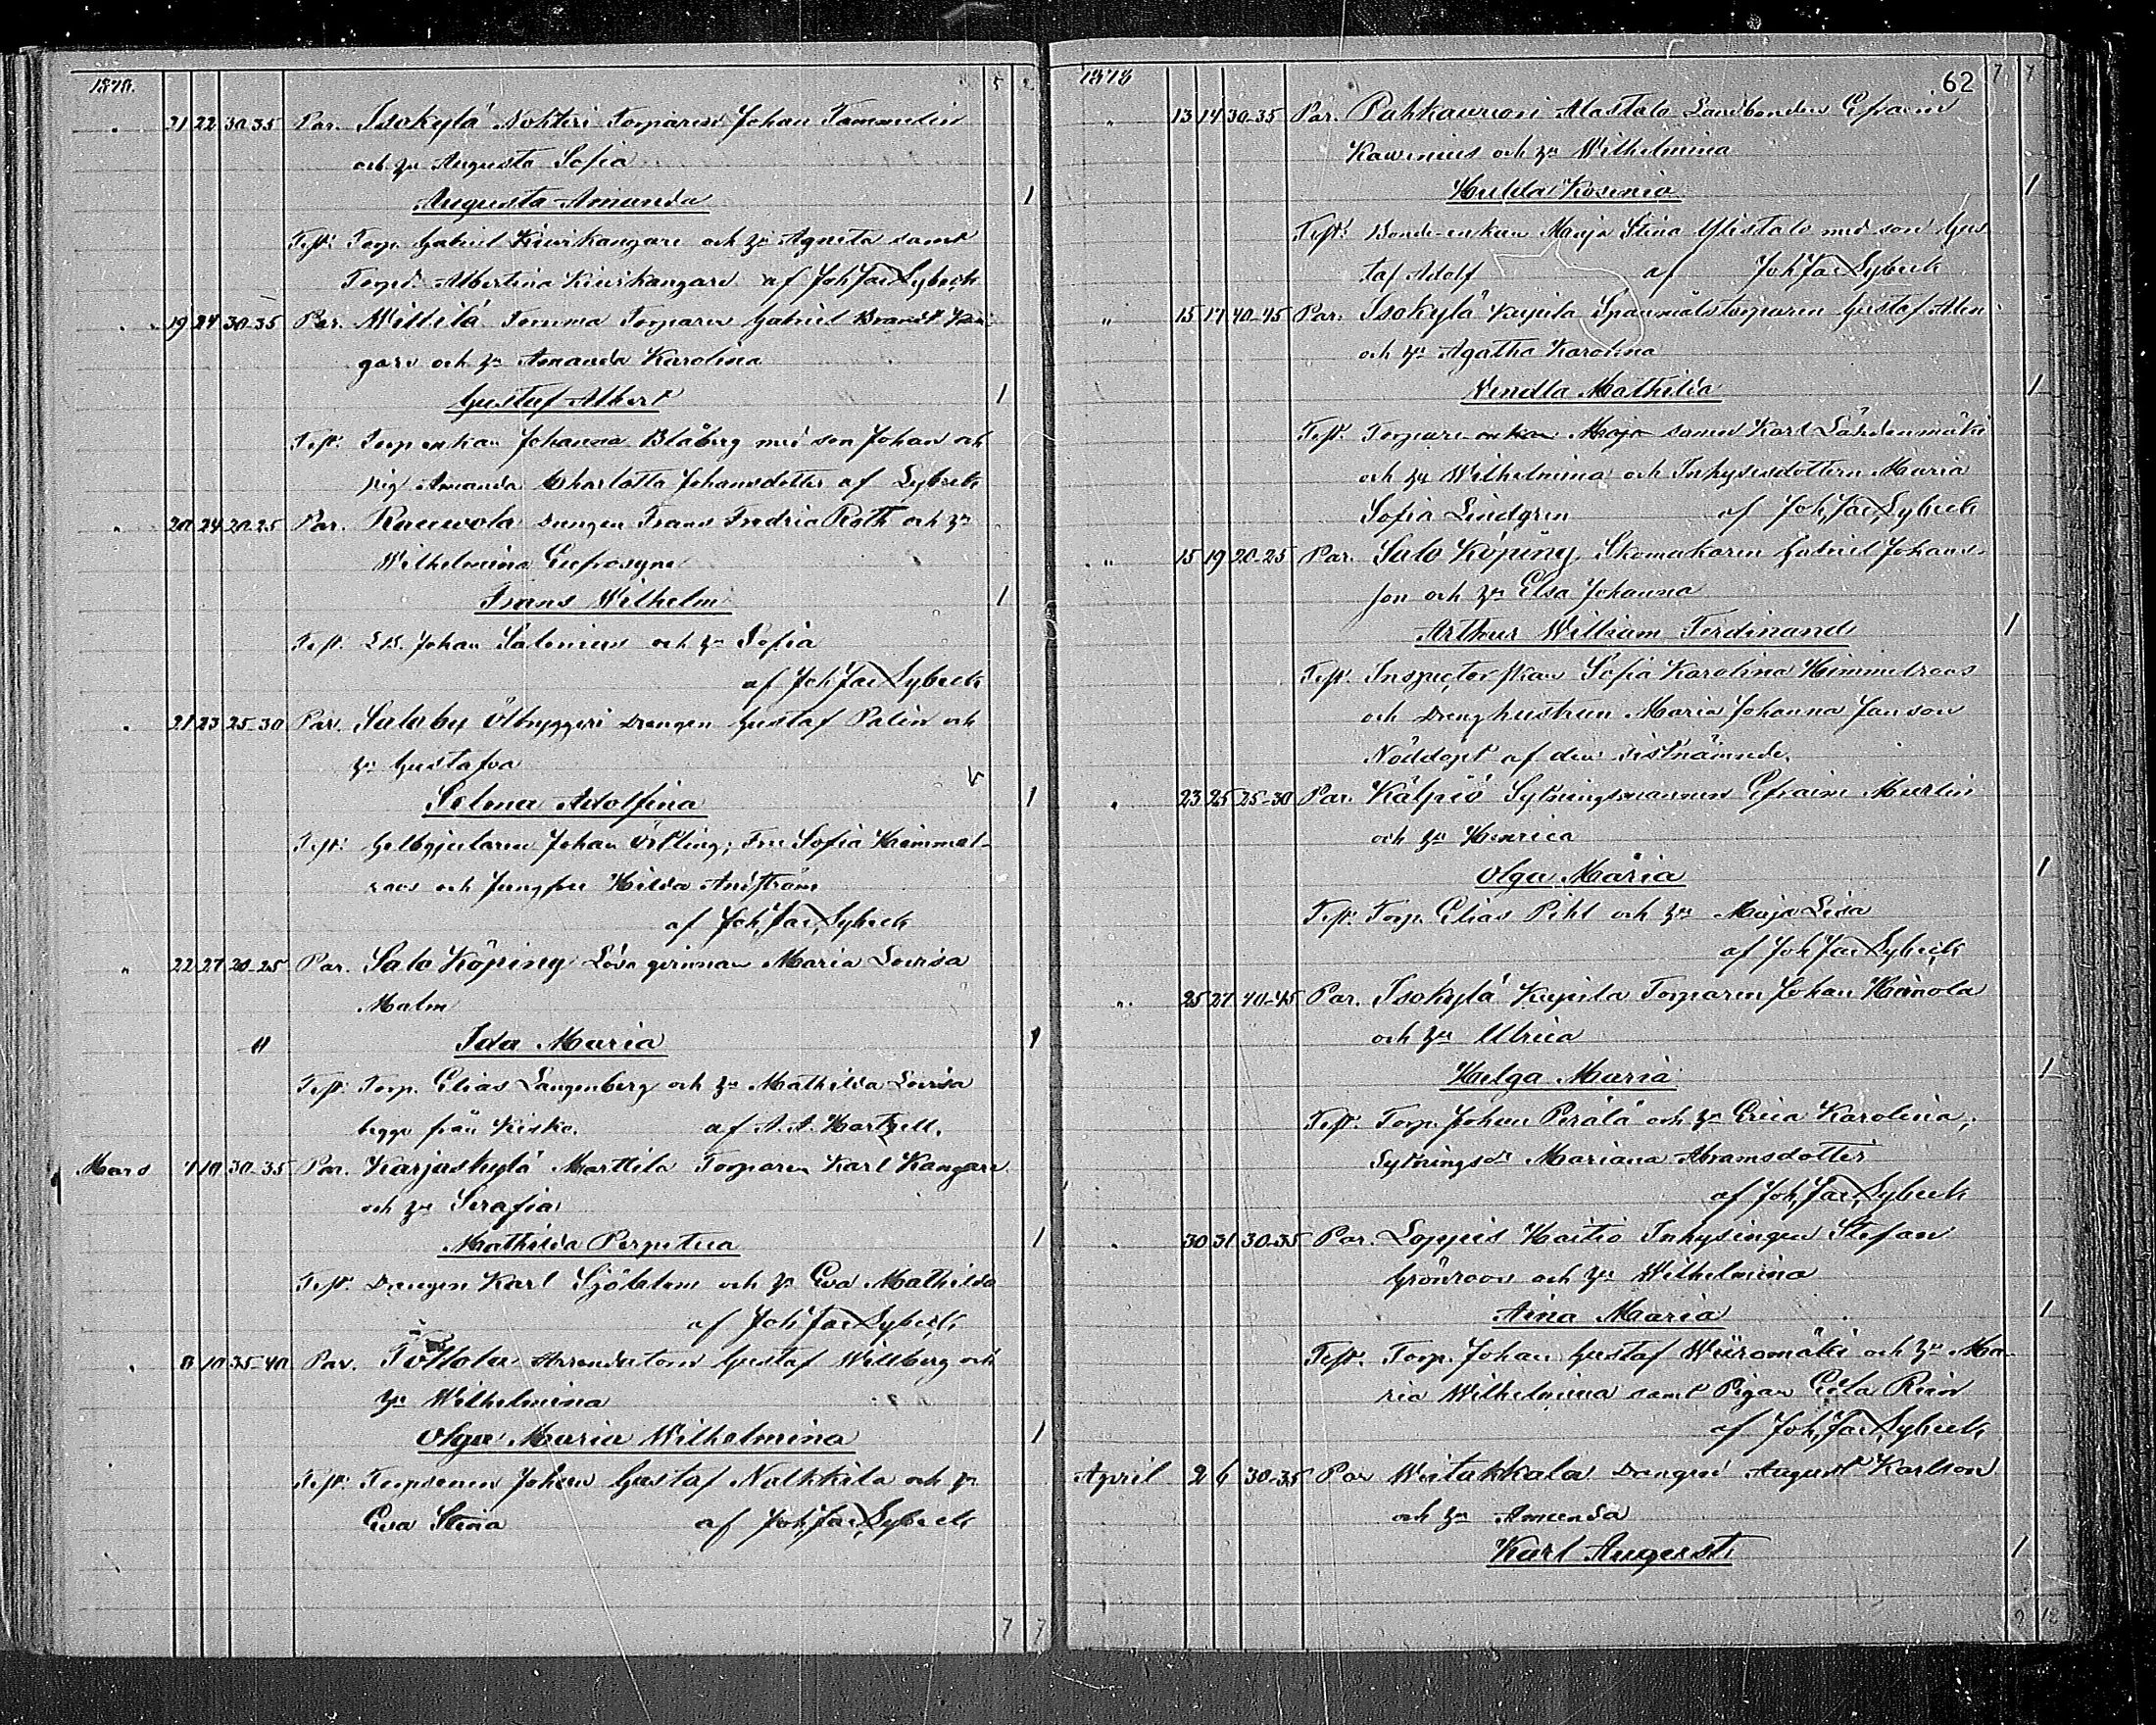 1878.
5
" 21 22 30-35 Par. Isokylä Nohteri Torparen Johan Tammelin
och hu Augusta Sofia
Augusta Amanda 1
Test: Torp. Gabriel Kiurikangare och hu Agneta samt
Torpd. Albertina Kiurikangare af Joh Jac Lybeck
" 19 24 30-35 Par. Willilä Tomma Torparen Gabriel Brandt Kan-
gare och hu Amanda Karolina
Gustaf Albert 1
Test: Torp enkan Johanna Blåberg med son Johan och
pig. Amanda Charlotta Johansdotter af Lybeck
" 20 24 20-25 Par. Rauvola Drengen Frans Fredric Roth och hu
Wilhelmina Eufrosyne
Frans Wilhelm 1
Test. Johan Salenius och hu Sofia
af Joh Jac Lybeck
" 21 23 25-30 Par. Saloby Ölbryggeri Drengen Gustaf Palin och
hu Gustafva
Selma Adolfina 1
Test: Gelbgjutaren Johan Örtling, Fru Sofia Himmel-
roos och Jungfru Hilda Andström
af Joh. Jac. Lybeck
" 22 27 20-25 Par. Salo Köping Lösa qvinnan Maria Lovisa
Malm
" Ida Maria 1
Test: Torp. Elias Långenberg och hu Mathilda Lovisa
begge från Kisko. af A. A. Hartzell.
Mars 7 10 30-35 Par. Karjaskylä Marttila Torparen Karl Kangare
och hu Serafia
Mathilda Perpetua 1
Test. Drengen Karl Sjöblom och hu Eva Mathilda
af Joh Jac Lybeck
" 8 10 35-40 Par. Tottola Arrendatorn Gustaf Willberg och
hu Wilhelmina
Olga Maria Wilhelmina 1
Test: Torparen Johan Gustaf Nalkkila och hu
Eva Stina af Joh, Jac, Lybeck
7 7
1878
62
7 7
" 13 14 30-35 Par. Pahkavuori Alastalo Landbonden Efraim
Kawenius och hu Wilhelmina
Hulda Rosinia 1
Test: Bonde-enkan Maja Stina Ylistalo med son Gus
taf Adolf af Joh Jac Lybeck
" 15 17 40-45 Par. Isokylä Kujula Spanmålstorparen Gustaf Alen
och hu Agatha Karolina
Vendla Mathilda 1
Test. Torpare enkan Maja sonen Karl Lähdenmäki
och hu Wilhelmina och Inhysesdottern Maria
Sofia Lindgren af Joh, Jac Lybeck
" 15 19 20-25 Par. Salo Köping, Skomakaren Gabriel Johans-
son och hu Elsa Johanna
Arthur William Ferdinand 1
Test. Inspectorskan Sofia Karolina Himmelroos
och Drenghustrun Maria Johanna Janson
Nöddöpt af den sistnämnde.
" 23 25 25-30 Par. Kälpiö Sytningsmannen Efraim Murlin
och hu Henrica
Olga Maria 1
Test. Torp. Elias Pihl och hu Maja Lisa
af Joh Jac Lybeck
" 25 27 40-45 Par. Isokylä Kujula Torparen Johan Heinola
och hu Ulrica
Helga Maria 1
Test. Torp. Johan Perälä och hu Erica Karolina;
Sytningsd: Mariana Abramsdotter
af Joh, Jac, Lybeck
" 30 31 30-35 Par. Loppis Haitio Inhysingen Stefan
Grönroos och hu Wilhelmina
Aina Maria 1
Test. Torp. Johan Gustaf Wuoromäki och hu Ma-
ria Wilhelmina samt Pigan Eola Rein
af Joh, Jac Lybeck
April 2 6 30-35 Par Wiitakkala Drengen August Karlson
och hu Amanda
Karl August 1
9 12